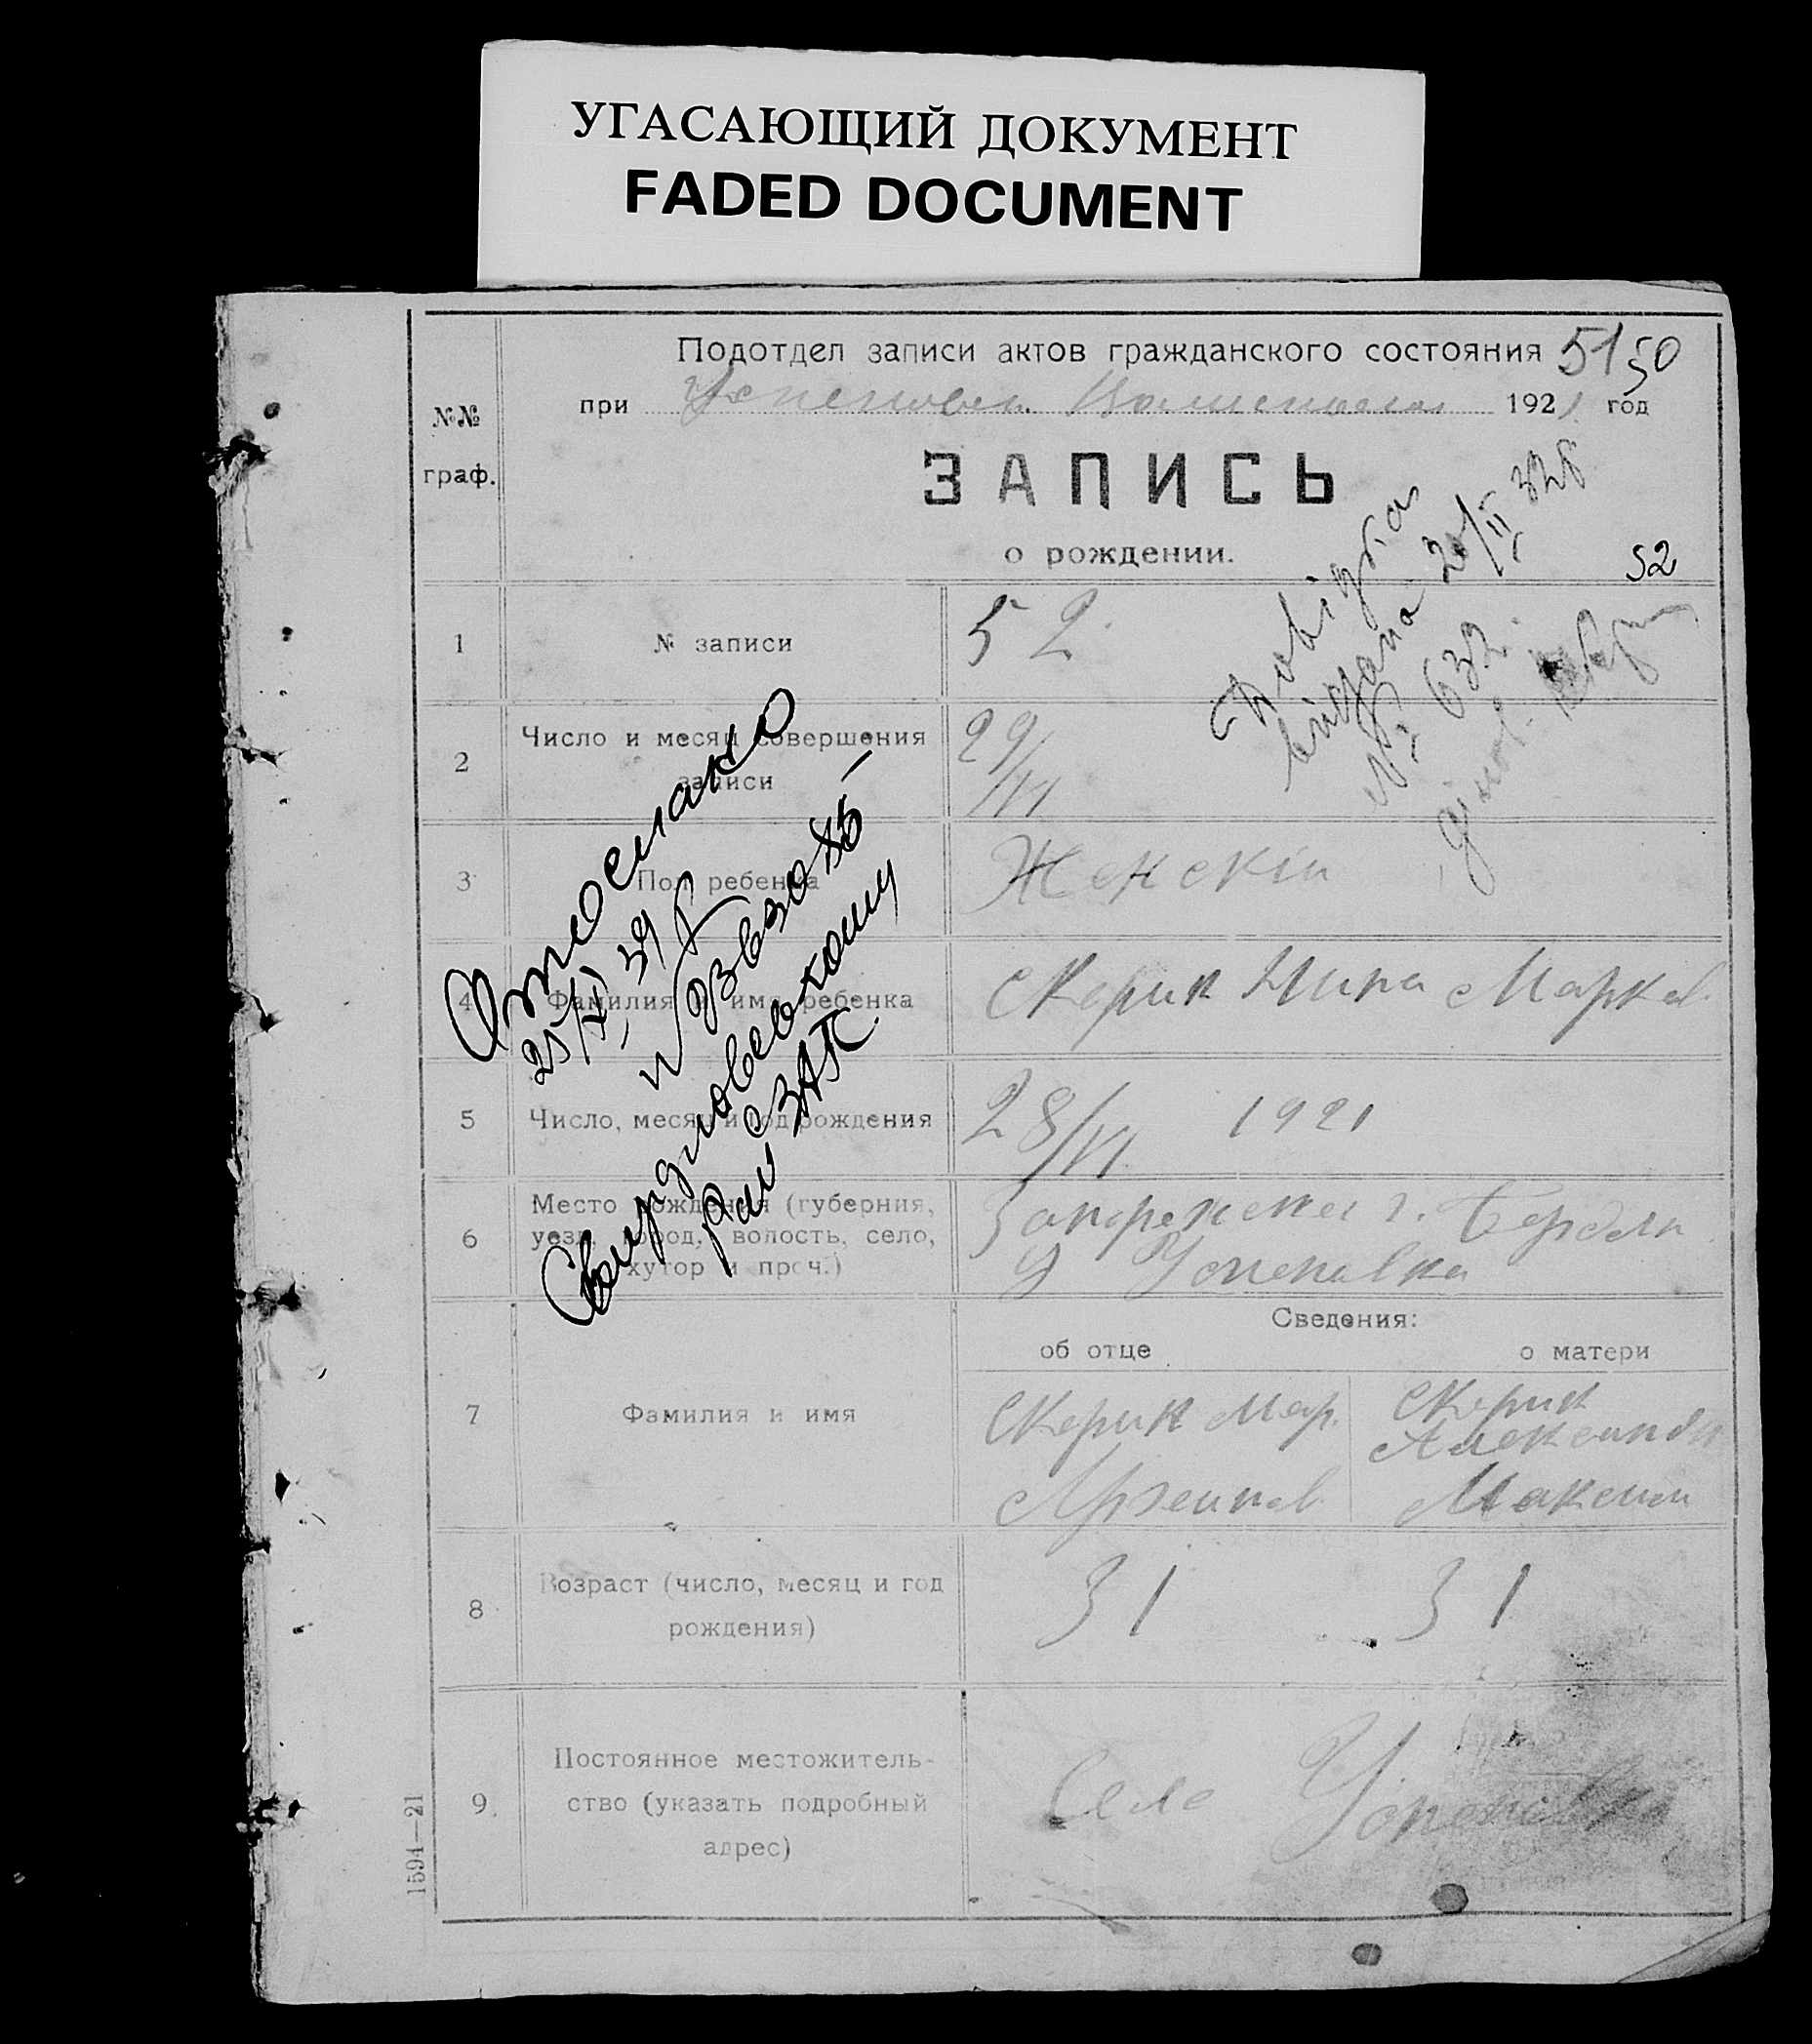 УГАСАЮЩИЙ ДОКУМЕНТ
FADED DOCUMENT
Подотдел записи актов гражданского состояния 51 50
при 1921 год
№№
граф.
ЗАПИСЬ
о рождении.
52
Довідка
видана 20/II 32 г
№ 632.
1
№ записи
52
2
Число и месяц совершения
записи
29/VI
3
Пол ребенка
Женскій
4
Фамилия и имя ребенка
Скорик Нина Марков
5
Число, месяц и год рождения
28/VI 1921
6
Место рождения (губерния,
уезд, город, волость, село,
хутор и проч.)
г. Бердян
у Успеновка
Отослано
25/VI 39 г
Свердловскому
рай ЗАГС
Сведения:
об отце
о матери
7
Фамилия и имя
Скорик Мар.
Скорик
Александра
Максим
8
Возраст (число, месяц и год
рождения)
31
31
9
Постоянное местожитель-
ство (указать подробный
адрес)
Село Успеновка
1594—21